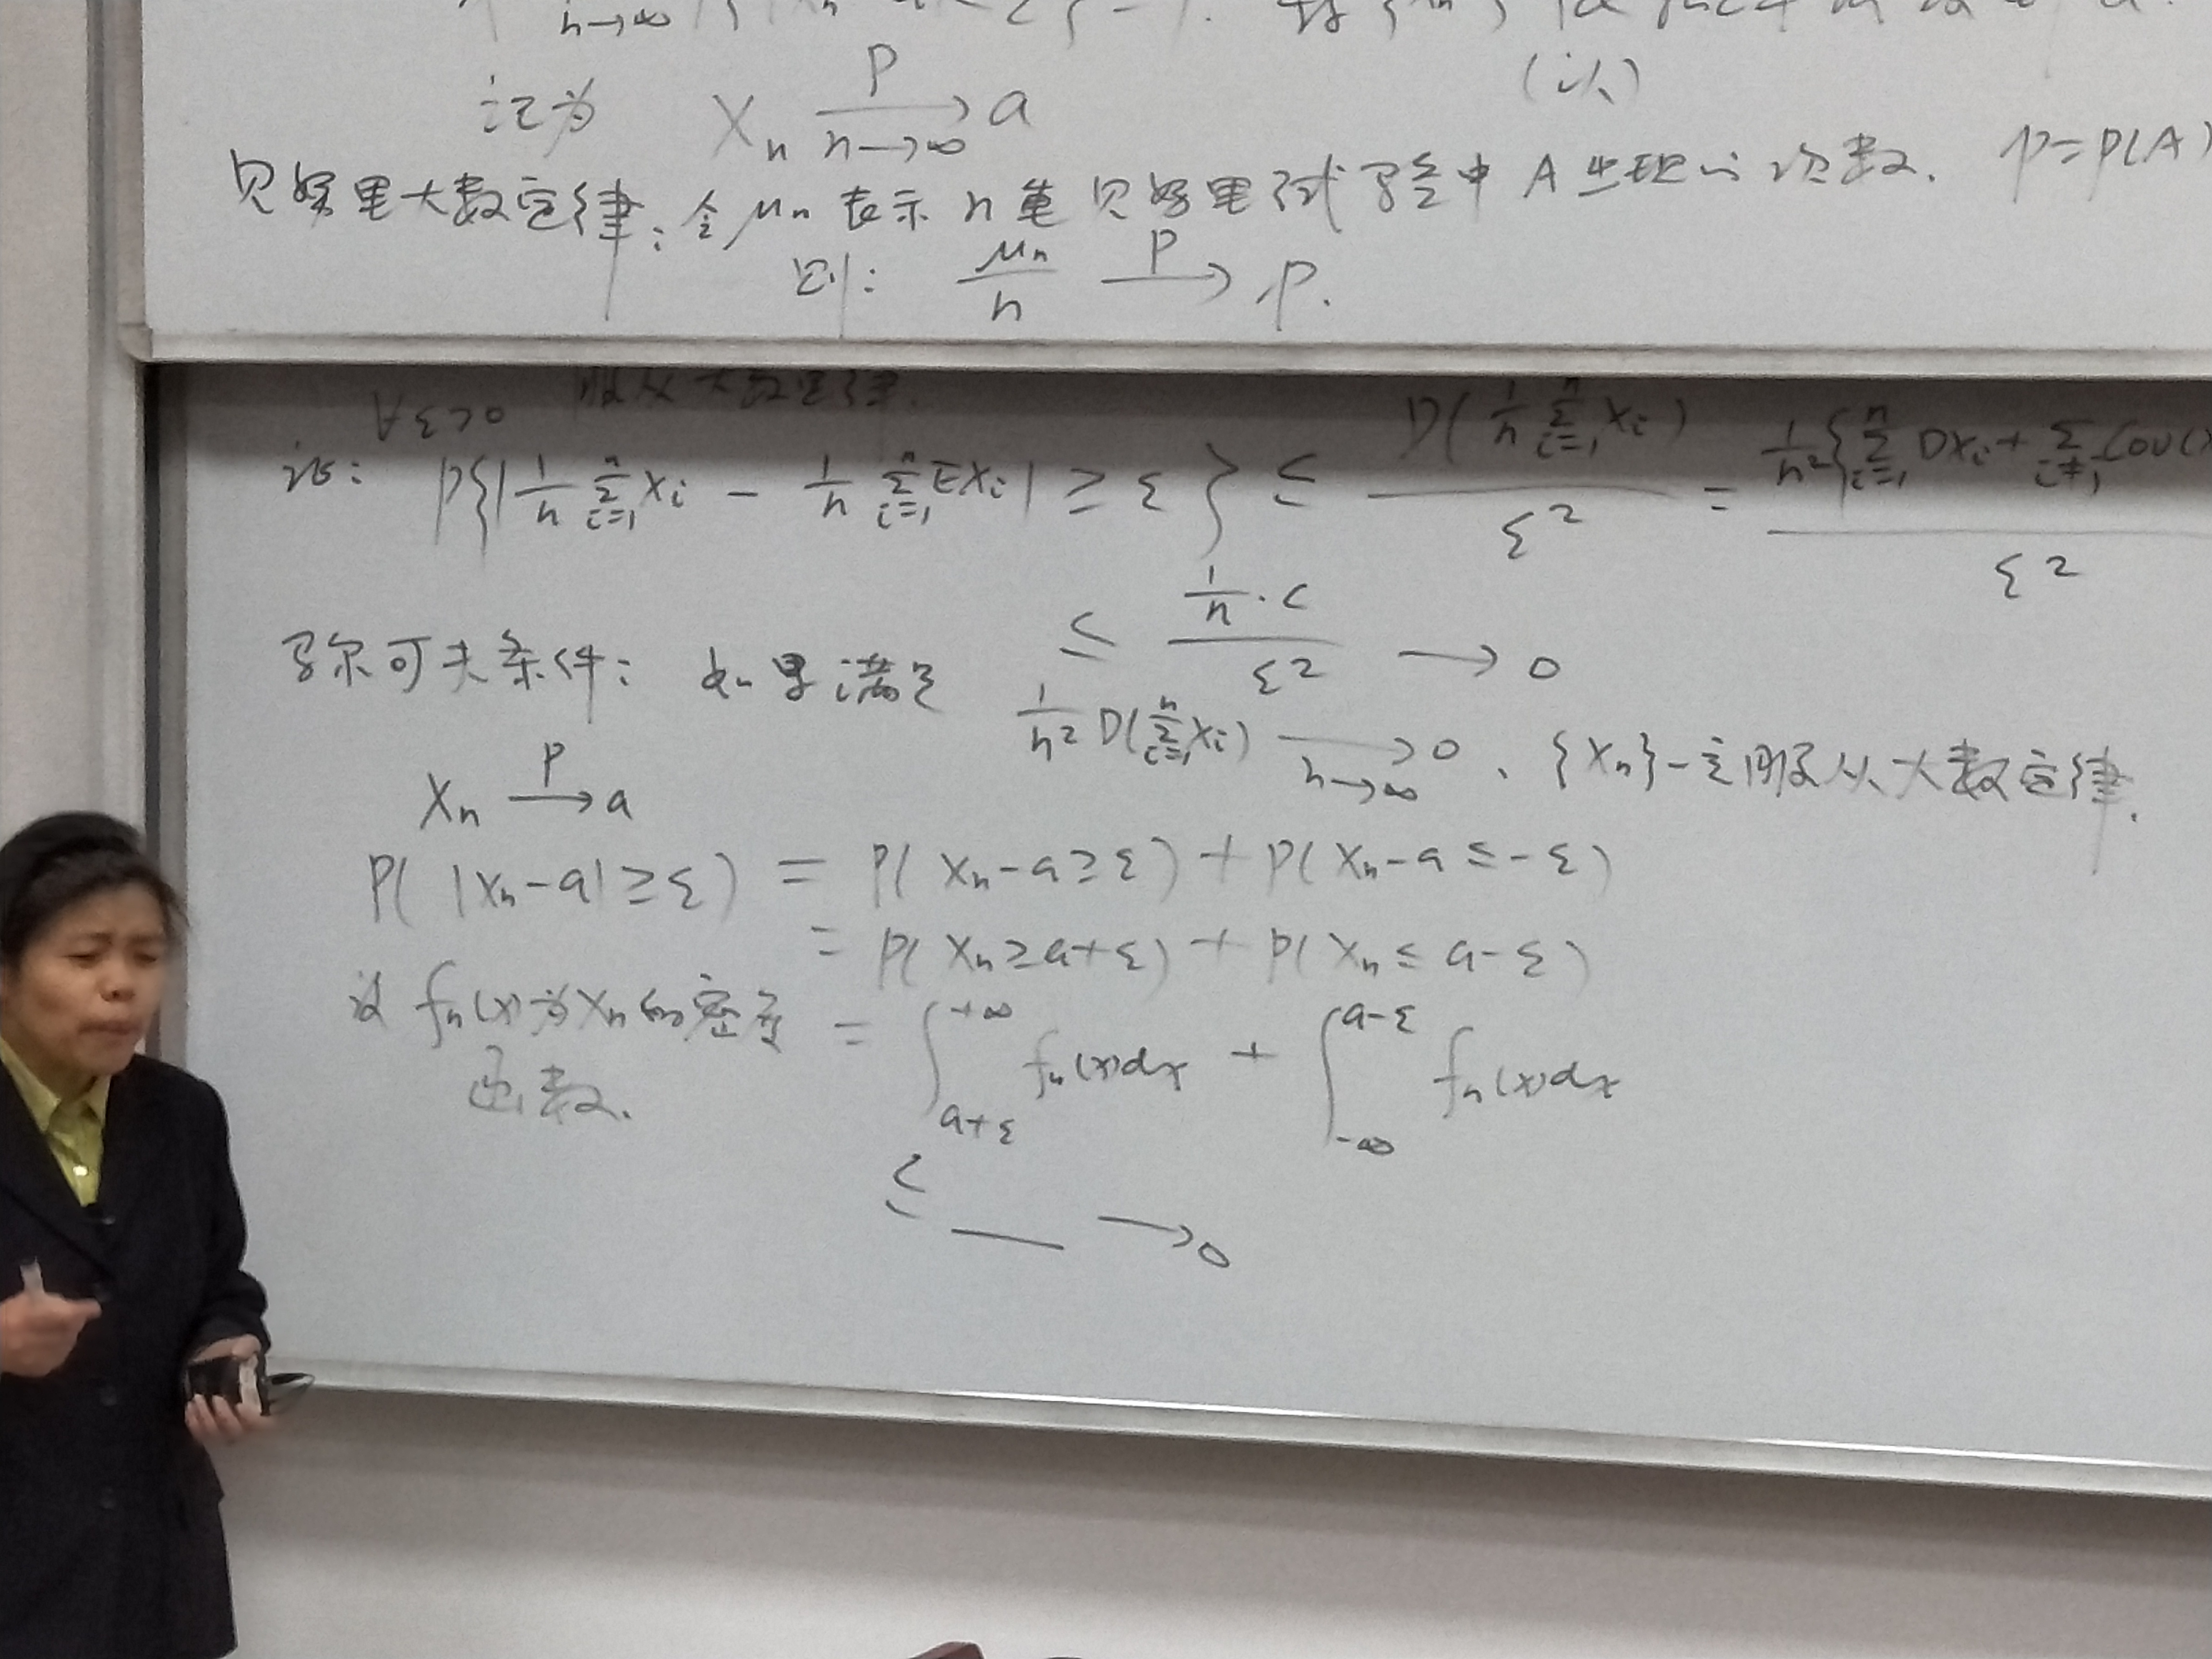 n→∞
记为 Xn P→ n→∞ a (以)
贝努里大数定律: 令 μn 表示 n 重贝努里试验中 A 出现的次数. p=P(A)
则: μn/n P→ p.
∀ε>0 服从大数定律.
证: P{|1/n Σ_{i=1}^n Xi − 1/n Σ_{i=1}^n EXi| ≥ ε} ≤ D(1/n Σ_{i=1}^n Xi)/ε² = 1/n²{Σ_{i=1}^n DXi + Σ_{i≠j} Cov(X /ε²
≤ (1/n · c)/ε² → 0
马尔可夫条件: 如果满足 1/n² D(Σ_{i=1}^n Xi) → n→∞ 0、{Xn}一定服从大数定律.
Xn P→ a
P(|Xn−a|≥ε) = P(Xn−a≥ε) + P(Xn−a≤−ε)
= P(Xn≥a+ε) + P(Xn≤a−ε)
设 fn(x)为Xn的密度函数. = ∫_{a+ε}^{+∞} fn(x)dx + ∫_{−∞}^{a−ε} fn(x)dx
≤ — → 0